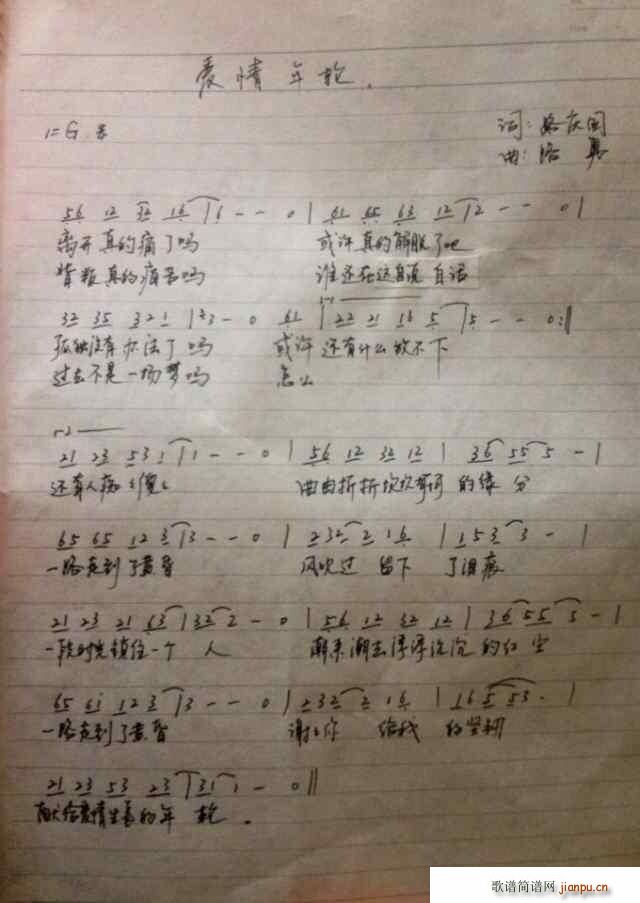 爱情年轮.
1=G
词:
曲:
56 12 32 16 | 6 - - 0 | 61 65 63 12 | 2 - - 0 |
离开真的痛了吗 或许真的解脱了吧
背叛真的痛苦吗 谁还在这自说自话
32 35 321 | 23 - 0 61 | 22 21 16 5 | 5 - - 0 :||
孤独没有办法了吗 或许还有什么放不下
过去不是一场梦吗 怎么
21 23 531 | 1 - - 0 | 56 12 32 12 | 36 55 5 - |
还有人 曲曲折折坎坎坷坷的缘分
65 65 12 3 | 3 - - 0 | 232 2 16 | 153 3 - |
一路走到了黄昏 风吹过 留下了泪痕
21 23 21 63 | 32 2 - 0 | 56 12 32 12 | 36 55 5 - |
一段时光锁住一个人 潮来潮去浮浮沉沉的红尘
65 61 12 3 | 3 - - 0 | 232 2 16 | 16 553 - |
一路走到了黄昏 谢谢你 给我
21 23 53 23 | 31 1 - 0 ||
献给爱情生长的年轮.
歌谱简谱网 jianpu.cn